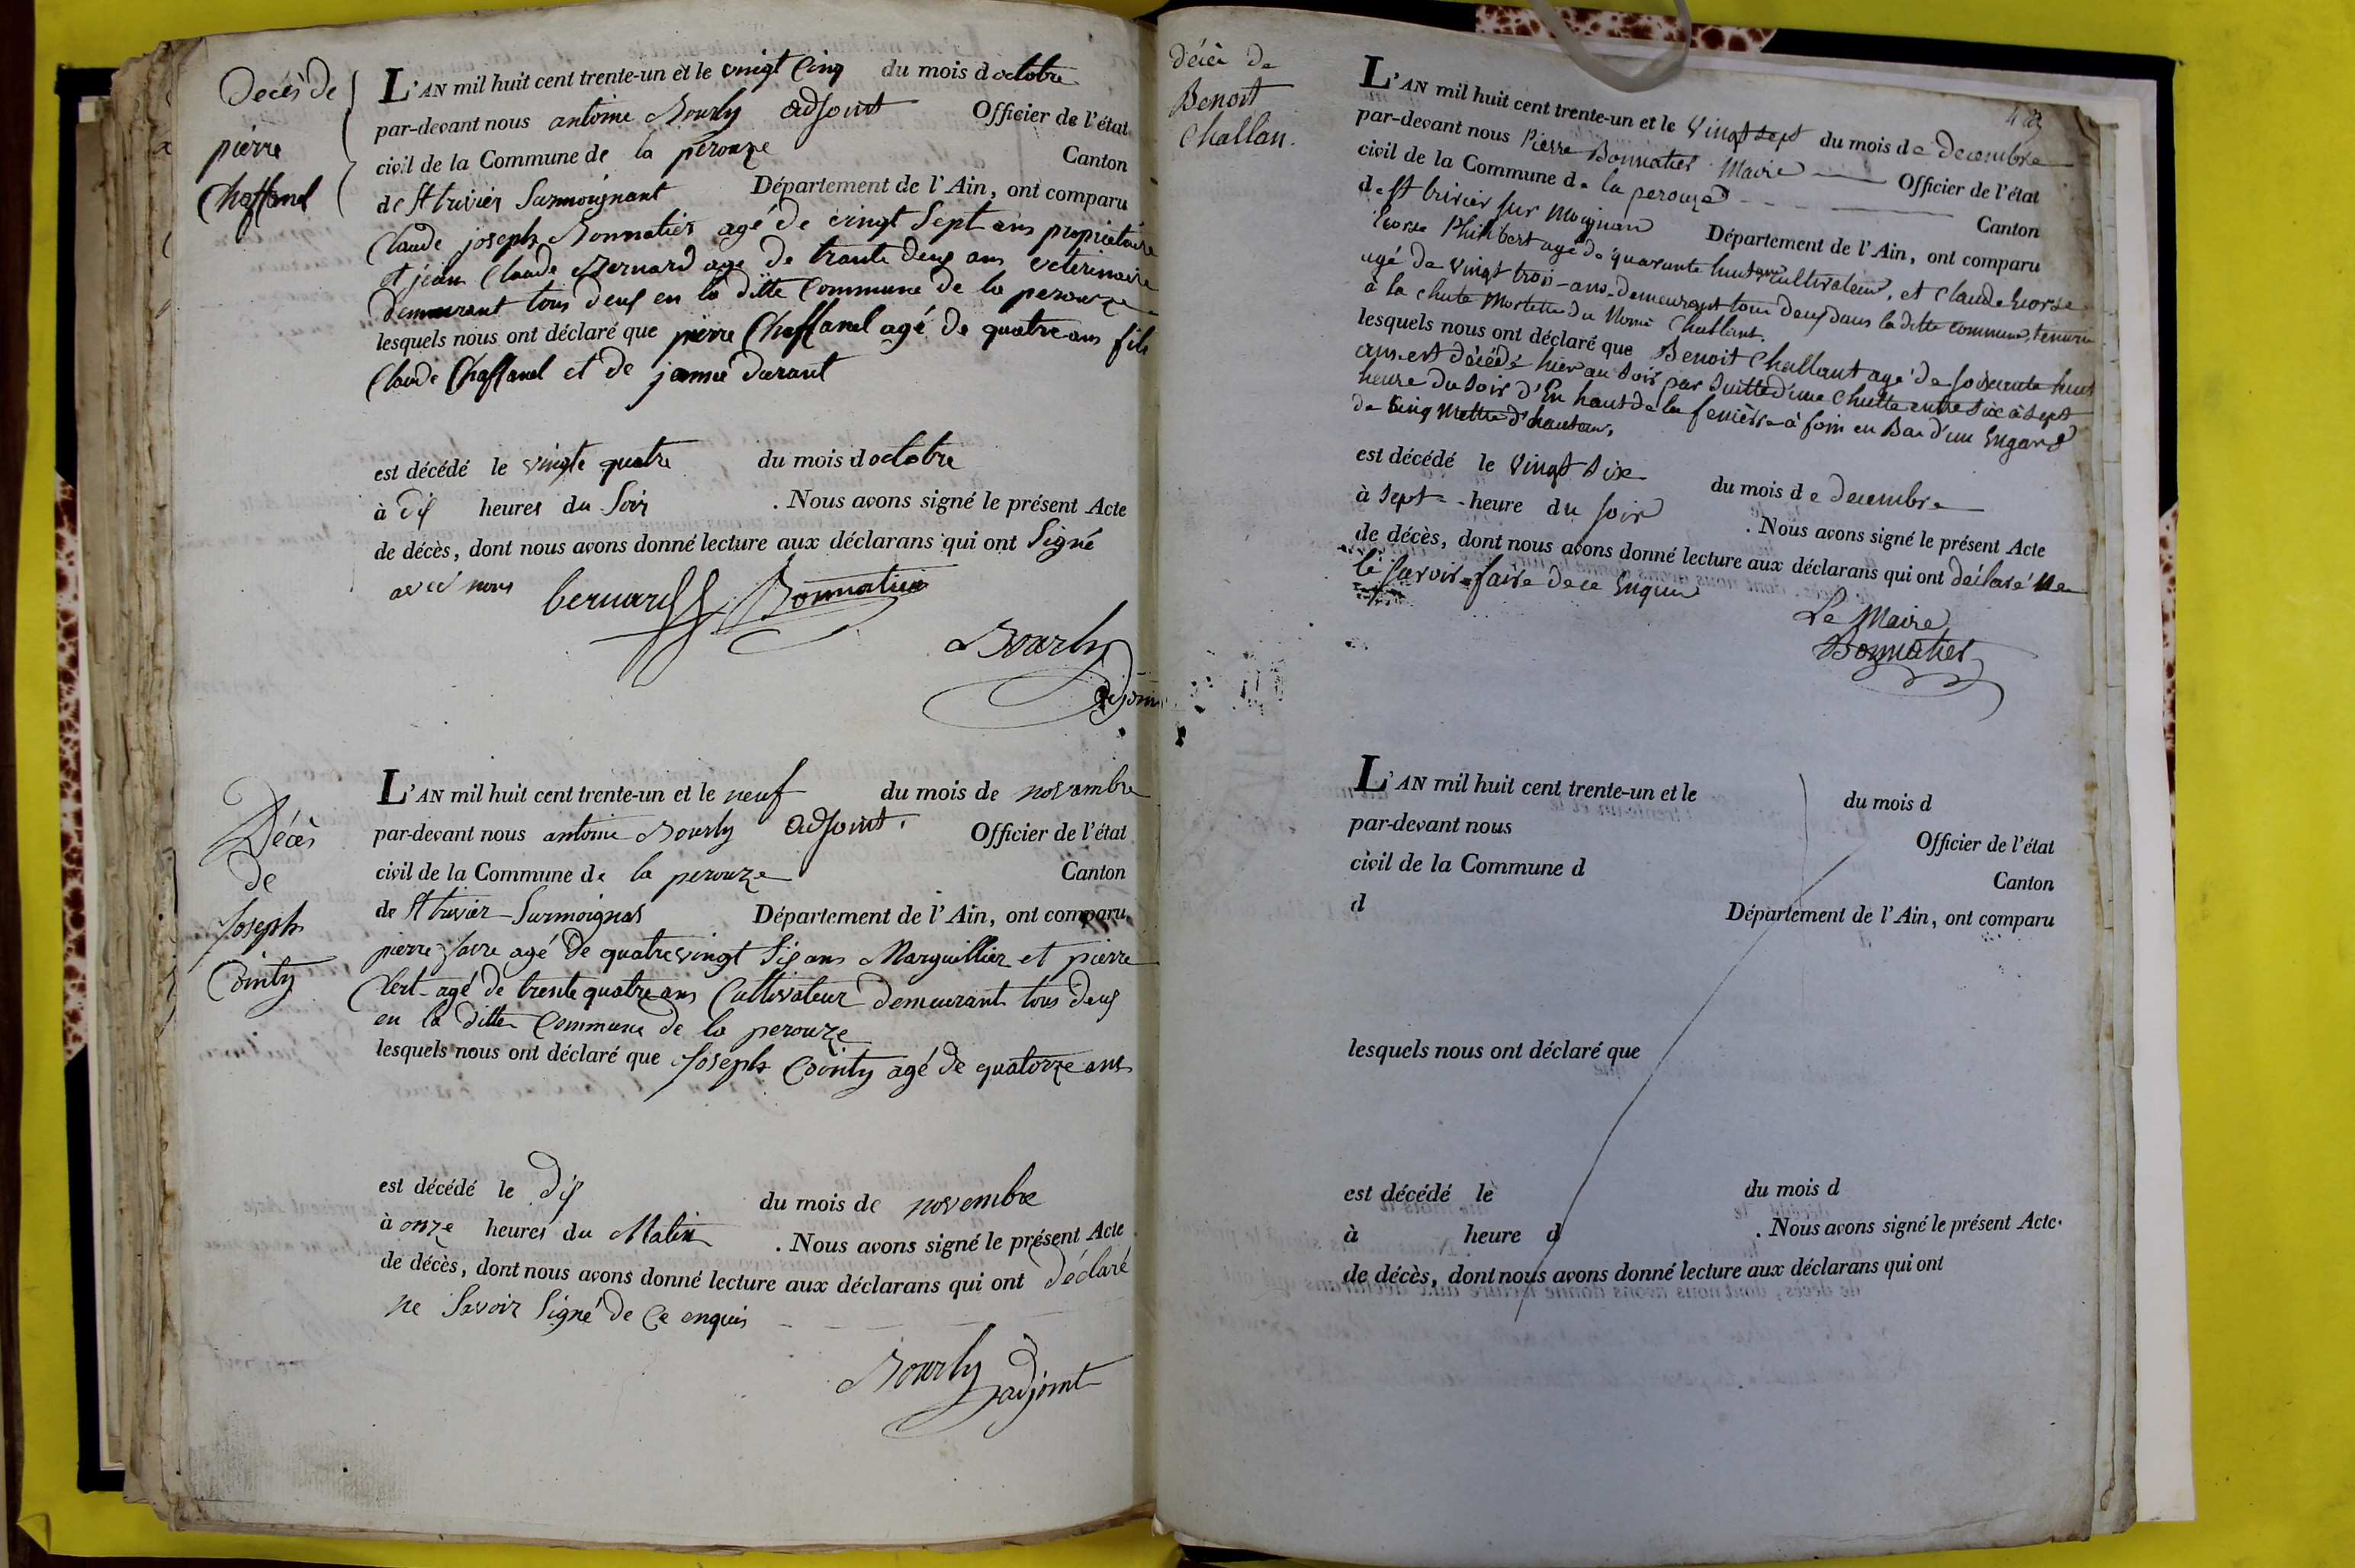 Décès de
pierre
Chaffanel
L'AN mil huit cent trente-un et le vingt Cinq du mois d octobre
par-devant nous antoine Bourly adjoint Officier de l'état
civil de la Commune de la perouze Canton
de St trivier Surmoignant Département de l'Ain, ont comparu
Claude joseph Bonnatier agé de vingt Sept ans propriétaire
et jean Claude Bernard agé de trante deux ans veterinaire
demeurant tous deux en la ditte Commune de la perouze
lesquels nous ont déclaré que pierre Chaffanel agé de quatre ans fils
Claude Chaffanel et de durant
est décédé le vingte quatre du mois d octobre
à dix heures du Soir . Nous avons signé le présent Acte
de décès, dont nous avons donné lecture aux déclarans qui ont Signé
avec nous bernard Bonnatier
Bourly
adjoint
Décès
de
Joseph
Cointy
L'AN mil huit cent trente-un et le neuf du mois de novembre
par-devant nous antoine Bourly adjoint . Officier de l'état
civil de la Commune de la perouze Canton
de St trivier Surmoignas Département de l'Ain, ont comparu
pierre favre agé de quatrevingt Six ans Marguillier et pierre
agé de trente quatre ans Cultivateur demeurant tous deux
en la ditte Commune de la perouze
lesquels nous ont déclaré que Joseph Cointy agé de quatorze ans
est décédé le dix du mois de novembre
à onze heures du Matin . Nous avons signé le présent Acte
de décès, dont nous avons donné lecture aux déclarans qui ont déclaré
ne Savoir Signé de Ce enquis
Bourly adjoint
décès de
Benoit
Challan.
L'AN mil huit cent trente-un et le Vingt sept du mois de decembre
par-devant nous Pierre Bonnatier Maire Officier de l'état
civil de la Commune de la perouze Canton
de St trivier sur Moignan Département de l'Ain, ont comparu
Philibert agé de quarante huit ans cultivateur, et Claude
agé de Vingt trois ans demeurant tous deux dans la ditte commune, temoin
à la chute Mortelle du Nomé Challant.
lesquels nous ont déclaré que Benoit Challant agé de soixante huit
ans est décédé hier au soir par suitte d'une Chutte entre six à sept
heure du soir d'En haut de la fenière à foin en Bas d'un Engard
de Cinq Mettre d'hauteur.
est décédé le Vingt six du mois de decembre
à sept heure du soir . Nous avons signé le présent Acte
de décès, dont nous avons donné lecture aux déclarans qui ont déclaré ne
le savoir faire de ce Enquis
Le Maire
Bonnatier
L'AN mil huit cent trente-un et le du mois d
par-devant nous Officier de l'état
civil de la Commune d Canton
d Département de l'Ain, ont comparu
lesquels nous ont déclaré que
est décédé le du mois d
à heure d . Nous avons signé le présent Acte
de décès, dont nous avons donné lecture aux déclarans qui ont